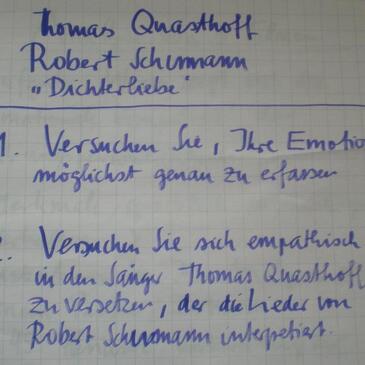 Thomas Quasthoff
Robert Schumann
„Dichterliebe"
1. Versuchen Sie, Ihre Emotio
möglichst genau zu erfassen
2. Versuchen Sie sich empathisch
in den Sänger Thomas Quasthoff
zu versetzen, der die Lieder von
Robert Schumann interpretiert.